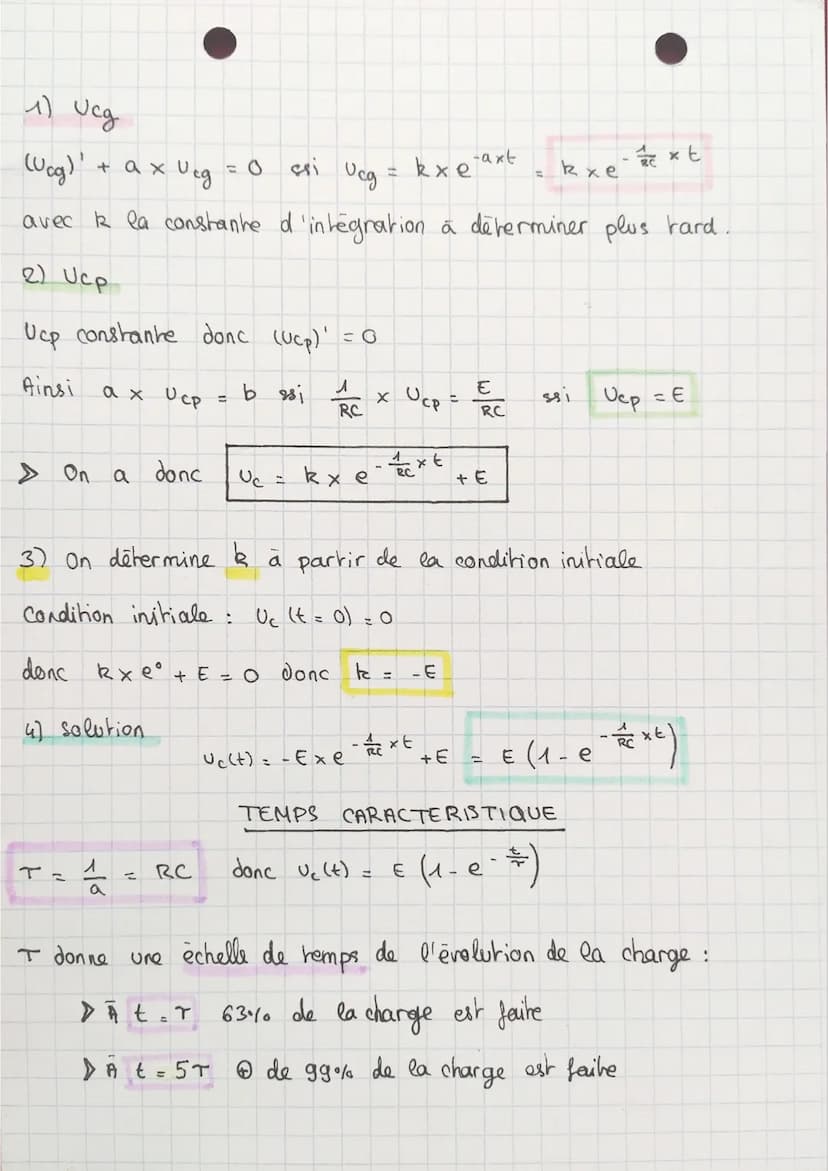 1) Ucg
(Ucg)' + a × Ucg = 0 ssi Ucg = k × e^(-a×t) = k × e^(-1/RC × t)
avec k la constante d'intégration à déterminer plus tard.
2) Ucp
Ucp constante donc (Ucp)' = 0
Ainsi a × Ucp = b ssi 1/RC × Ucp = E/RC ssi Ucp = E
> On a donc Uc = k × e^(-1/RC × t) + E
3) On détermine k à partir de la condition initiale
Condition initiale : Uc (t = 0) = 0
donc k × e⁰ + E = 0 donc k = -E
4) solution
Uc(t) = - E × e^(-1/RC × t) + E = E (1 - e^(-1/RC × t))
TEMPS CARACTERISTIQUE
τ = 1/a = RC donc Uc(t) = E (1 - e^(-t/τ))
τ donne une échelle de temps de l'évolution de la charge :
> À t = τ 63% de la charge est faite
> À t = 5τ ⊕ de 99% de la charge est faite